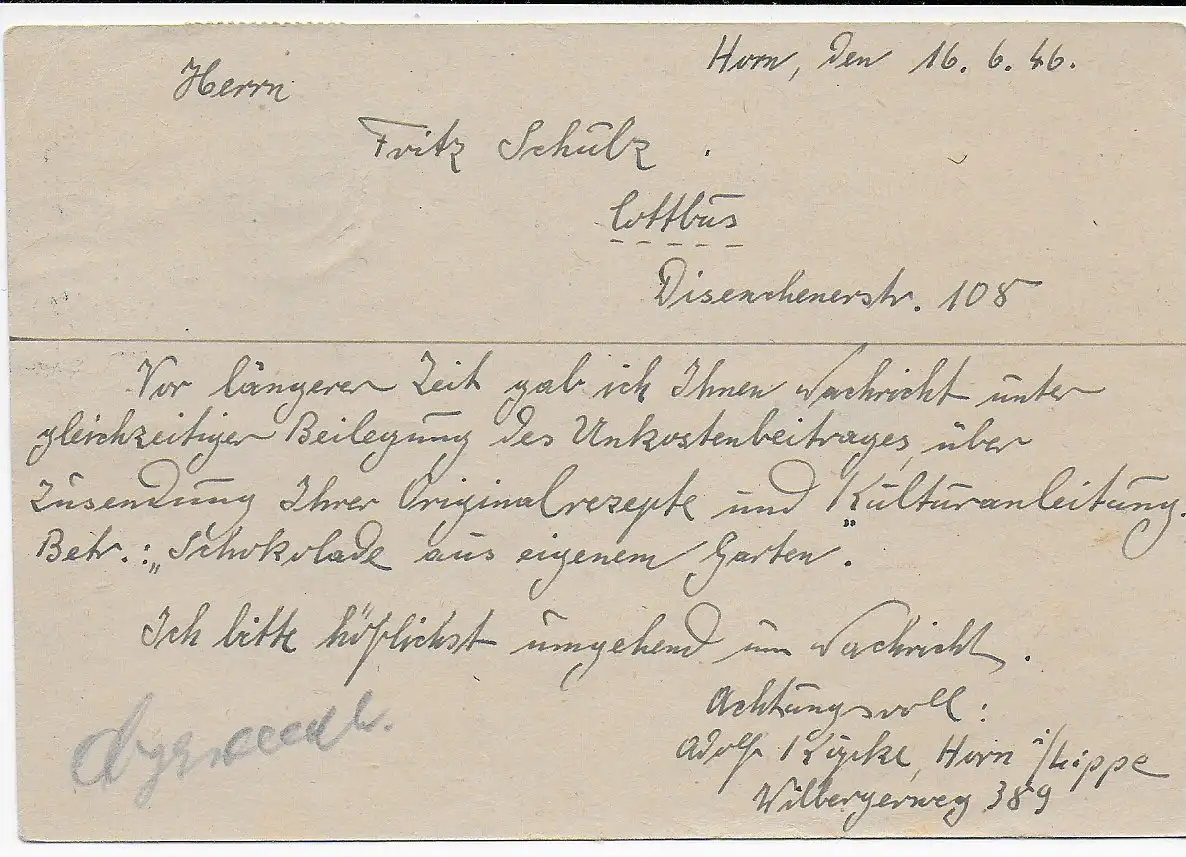 Horn, den 16. 6. 46.
Herrn
Fritz Schulz.
Cottbus
Disenchenerstr. 108
Vor längerer Zeit gab ich Ihnen Nachricht unter
gleichzeitiger Beilegung des Unkostenbeitrages, über
Zusendung Ihrer Originalrezepte und Kulturanleitung.
Betr.: „Schokolade aus eigenem Garten".
Ich bitte höflichst umgehend um Nachricht.
Achtungsvoll:
Adolf Horn i/Lippe
Wilbergerweg 389